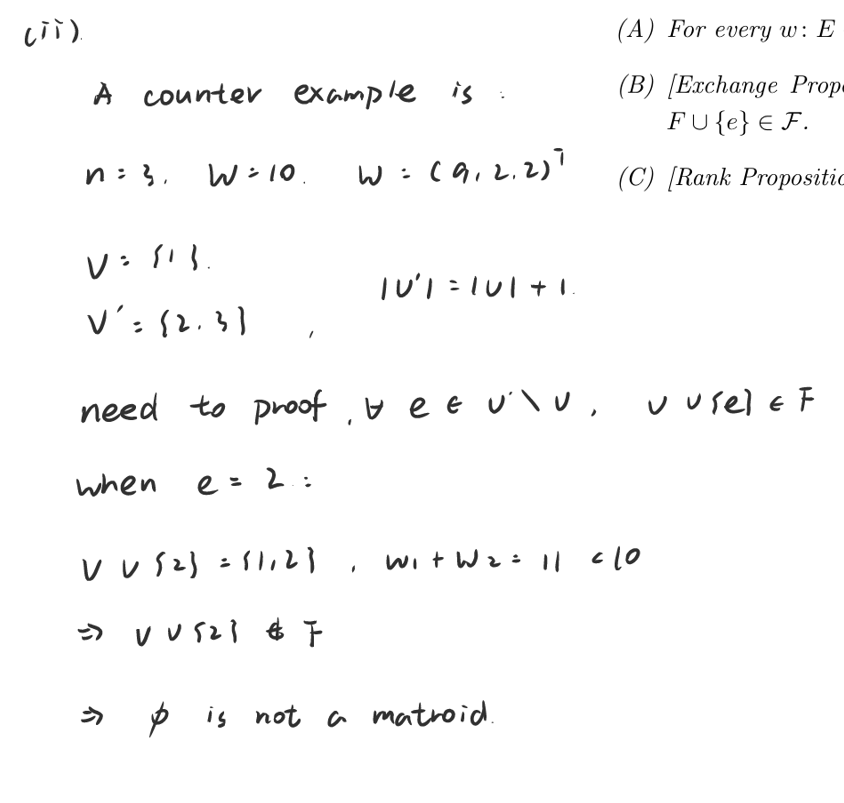 (ii).
A counter example is :
n = 3. W = 10. w = (9, 2, 2)ᵀ
U = {1}.
U' = {2, 3} , |U'| = |U| + 1.
need to proof , ∀ e ∈ U' \ U , U ∪ {e} ∈ F
when e = 2 :
U ∪ {2} = {1, 2} , w₁ + w₂ = 11 < 10
⇒ U ∪ {2} ∉ F
⇒ φ is not a matroid.
(A) For every w: E
(B) [Exchange
F ∪ {e} ∈ F.
(C) [Rank